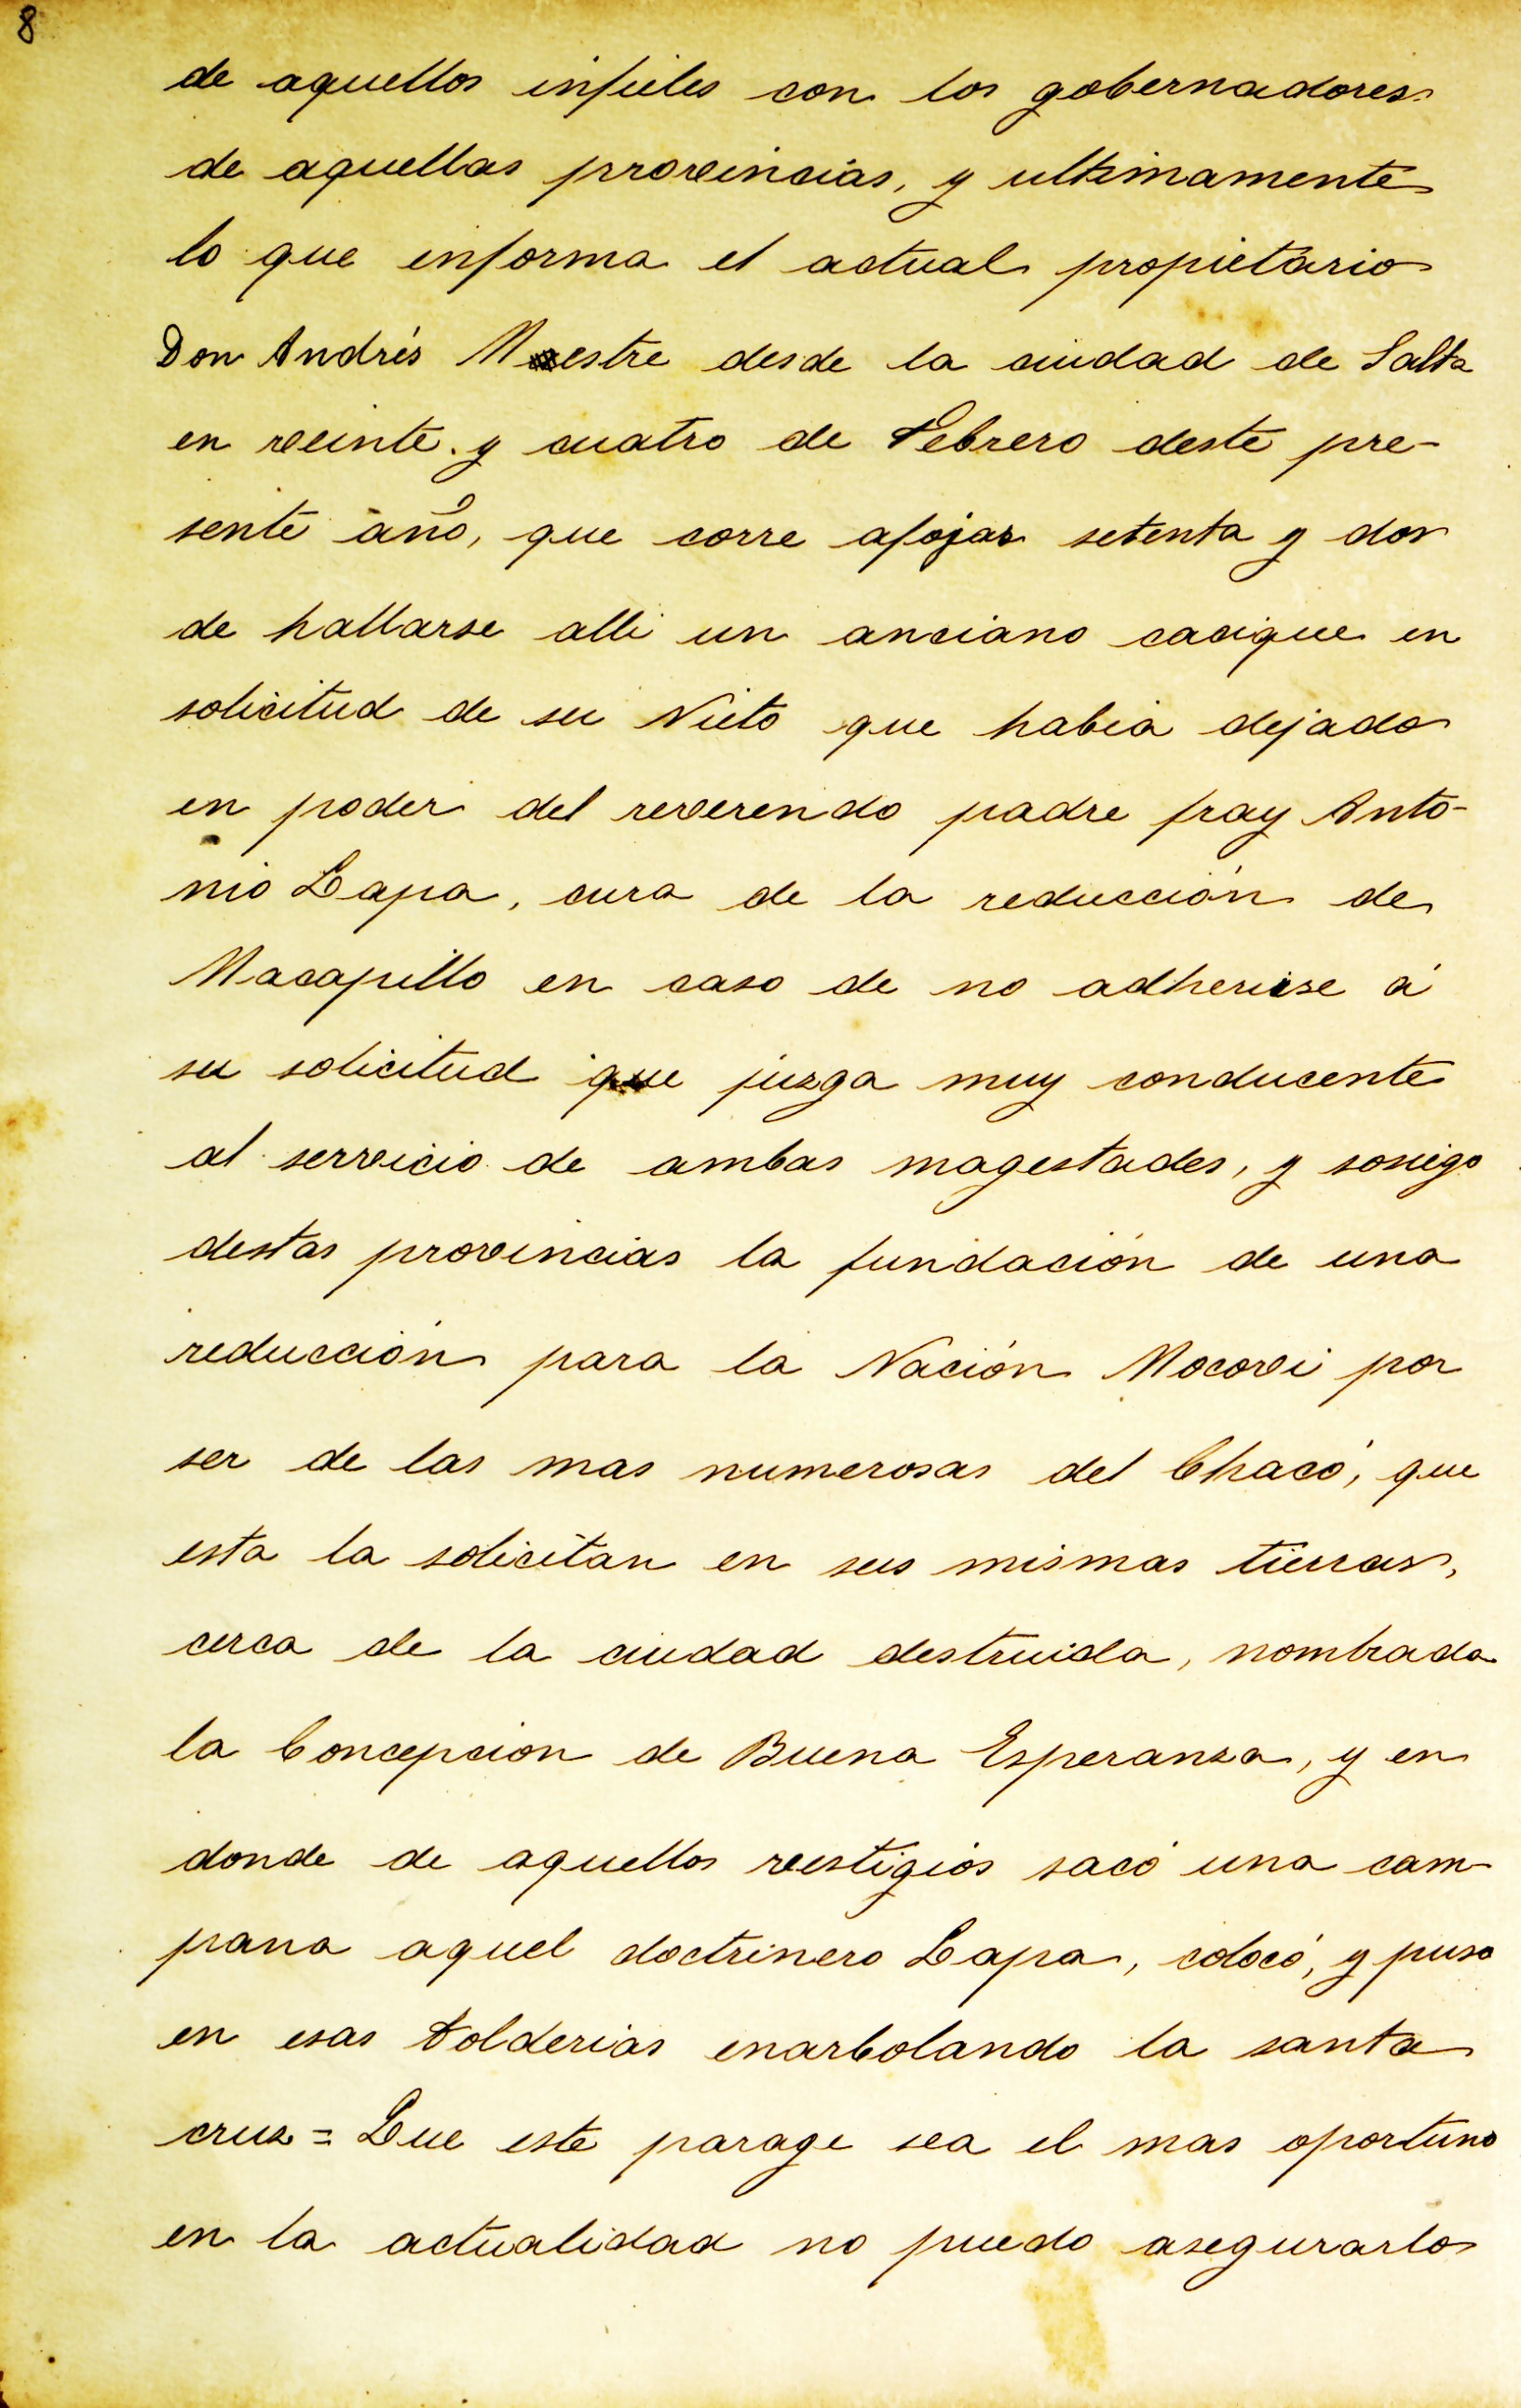 8
de aquellos infieles con los gobernadores
de aquellas provincias, y ultimamente
lo que informa el actual propietario
Don Andrés Mestre desde la ciudad de Salta
en veinte y cuatro de Febrero deste pre-
sente año, que corre afojas setenta y dos
de hallarse alli un anciano cacique en
solicitud de su Nieto que habia dejado
en poder del reverendo padre fray Anto-
nio Lapa, cura de la reducción de
Macapillo en caso de no adherirse á
su solicitud que juzga muy conducente
al servicio de ambas magestades, y sosiego
destas provincias la fundación de una
reducción para la Nación Mocovi por
ser de las mas numerosas del Chaco, que
esta la solicitan en sus mismas tierras,
cerca de la ciudad destruida, nombrada
la Concepcion de Buena Esperanza, y en
donde de aquellos vestigios sacó una cam-
pana aquel doctrinero Lapa, colocó, y puso
en esas tolderias enarbolando la santa
cruz = Que este parage sea el mas oportuno
en la actualidad no puedo asegurarlo